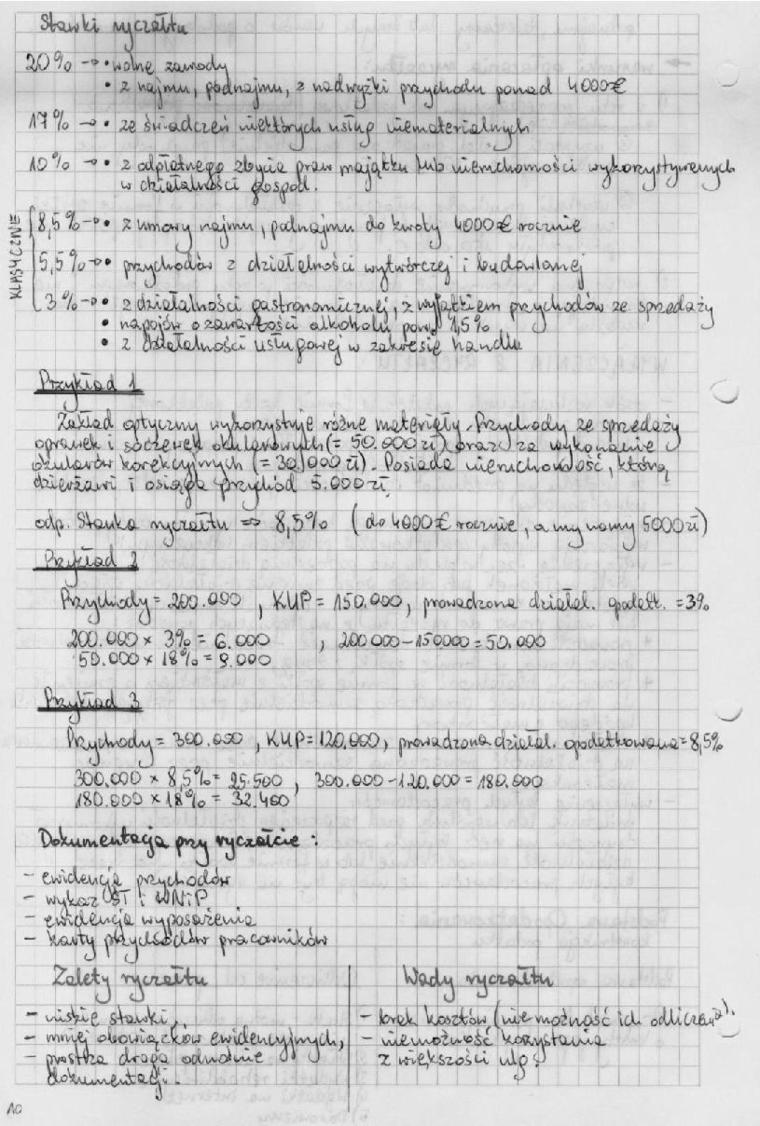 Stawki ryczałtu
20% → • wolne zawody
• z najmu, podnajmu, z nadwyżki przychodu ponad 4000€
17% → • ze świadczeń niektórych usług niematerialnych
10% → • z odpłatnego zbycia praw majątku lub nieruchomości wykorzystywanych
w działalności gospod.
KLASYCZNIE
8,5% → • z umowy najmu, podnajmu do kwoty 4000€ rocznie
5,5% → • przychodów z działalności wytwórczej i budowlanej
3% → • z działalności gastronomicznej, z wyjątkiem przychodów ze sprzedaży
• napojów o zawartości alkoholu pow. 1,5%
• z działalności usługowej w zakresie handlu
Przykład 1
Zakład optyczny wykorzystuje różne materiały. Przychody ze sprzedaży
oprawek i soczewek okularowych (= 50.000 zł) oraz za wykonanie
okularów korekcyjnych (= 30.000 zł). Posiada nieruchomość, którą
dzierżawi i osiąga przychód 5.000 zł.
odp. Stawka ryczałtu ⇒ 8,5% (do 4000€ rocznie, a my mamy 5000 zł)
Przykład 2
Przychody = 200.000, KUP = 150.000, prowadzona działal. opodatk. = 3%
200.000 × 3% = 6.000 , 200 000 - 150000 = 50.000
50.000 × 18% = 9.000
Przykład 3
Przychody = 300.000, KUP = 120.000, prowadzona działal. opodatkowana = 8,5%
300.000 × 8,5% = 25.500 , 300.000 - 120.000 = 180.000
180.000 × 18% = 32.400
Dokumentacja przy ryczałcie :
- ewidencja przychodów
- wykaz ŚT i WNiP
- ewidencja wyposażenia
- karty przychodów pracowników
Zalety ryczałtu
- niskie stawki,
- mniej obowiązków ewidencyjnych,
- prostsza droga odnośnie
dokumentacji.
Wady ryczałtu
- brak kosztów (niemożność ich odliczenia),
- niemożność korzystania
z większości ulg.
10